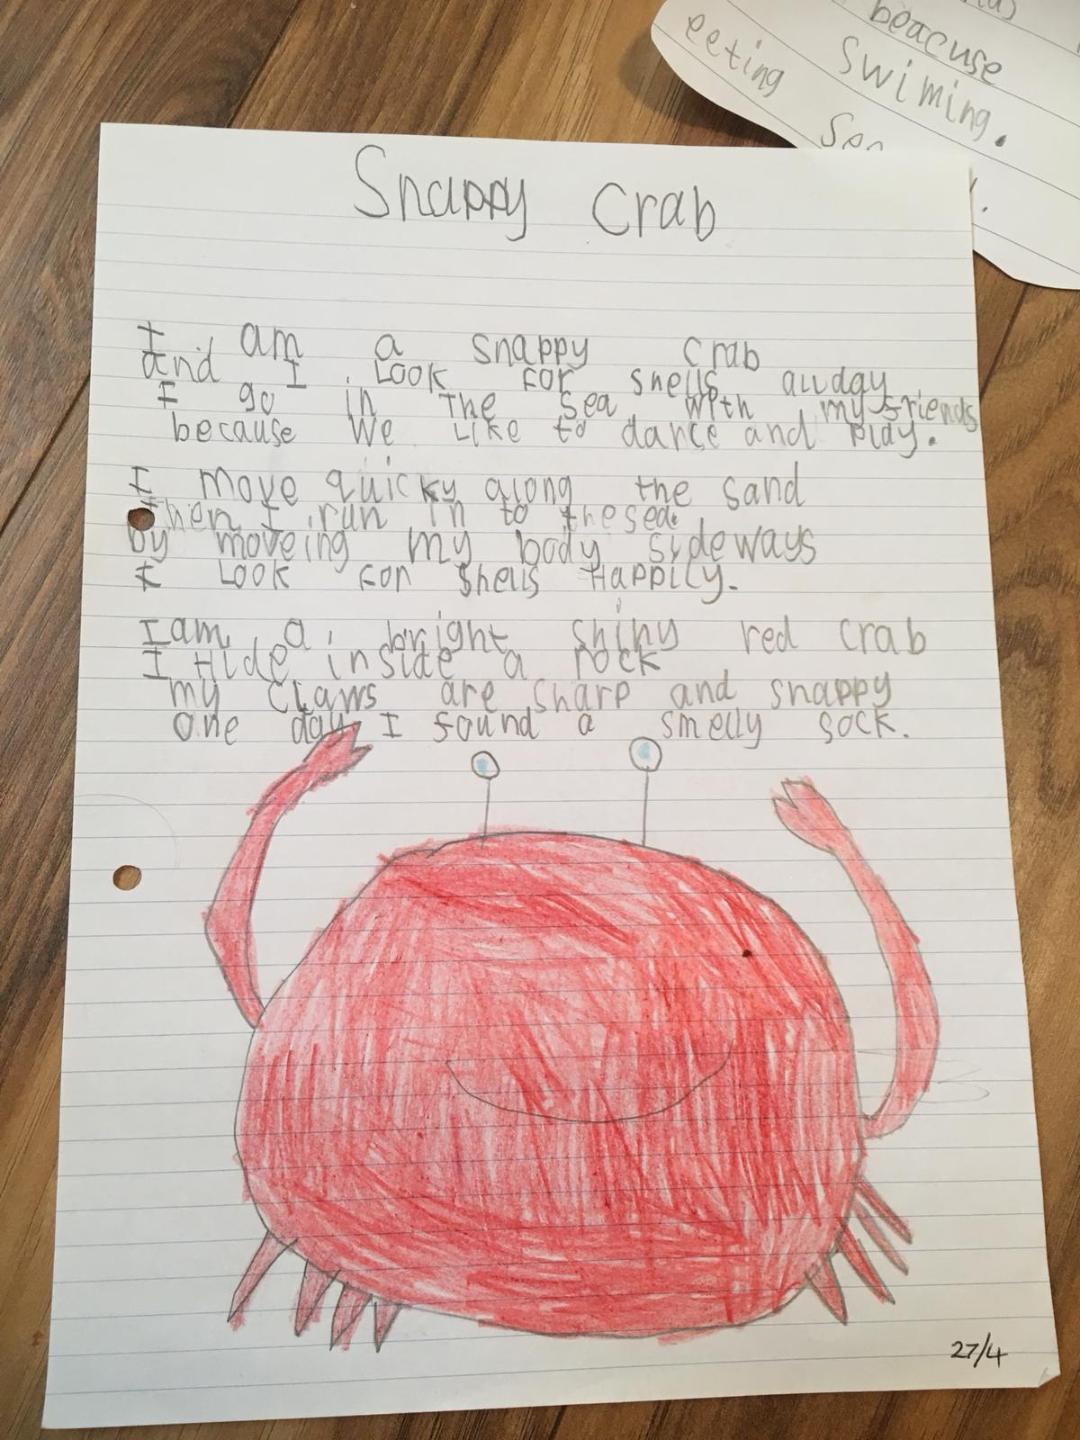 beacuse
eeting swiming.
Snappy Crab
I am a snappy crab
and I Look for shells allday
I go in the sea with my friends
because we Like to dance and play.
I move quicky along the sand
then I run in to the sea.
by moveing my body sideways
I Look for shells Happily.
I am a bright shiny red crab
I Hide inside a rock
my claws are sharp and snappy
one day I found a smelly sock.
27/4